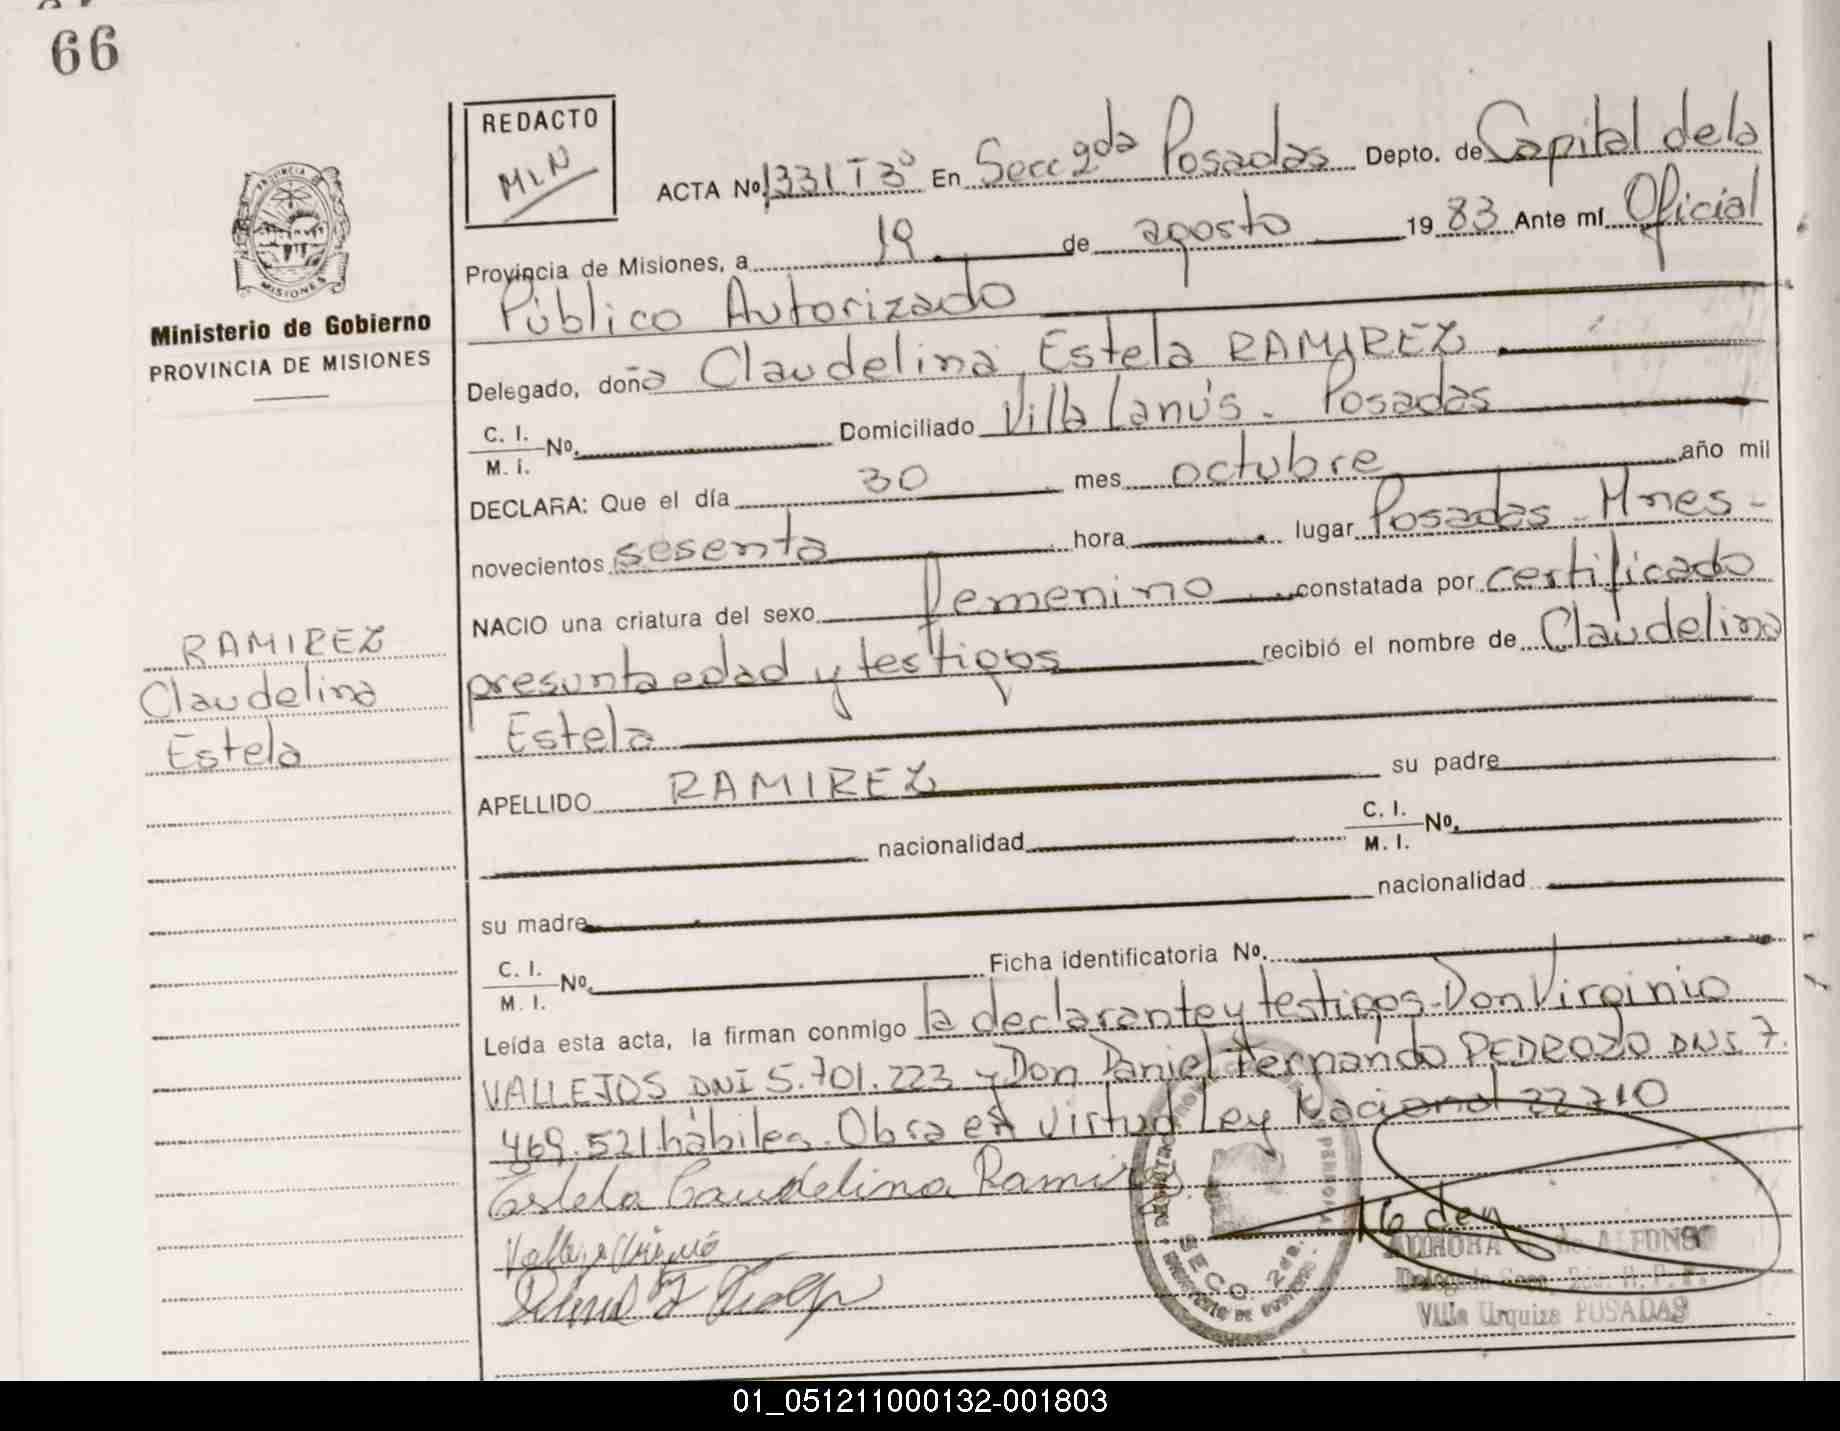 66
REDACTO
MLN
ACTA Nº 1331 T3º En Secc 2da Posadas Depto. de Capital de la
Provincia de Misiones, a 19 de agosto 1983 Ante mí Oficial
Público Autorizado
Ministerio de Gobierno
PROVINCIA DE MISIONES
Delegado, doña Claudelina Estela RAMIREZ
C. I.
M. I. Nº. Domiciliado Villa Lanús - Posadas
DECLARA: Que el día 30 mes octubre año mil
novecientos sesenta hora lugar Posadas - Mnes -
NACIO una criatura del sexo femenino constatada por certificado
presunta edad y testigos recibió el nombre de Claudelina
Estela
RAMIREZ
Claudelina
Estela
APELLIDO RAMIREZ su padre
nacionalidad C. I.
M. I. Nº.
su madre nacionalidad
C. I.
M. I. Nº. Ficha identificatoria Nº.
Leída esta acta, la firman conmigo la declarante y testigos - Don Virginio
VALLEJOS DNI 5.701.223 y Don Daniel Fernando PEDROZO DNI 7.
469.521 hábiles. Obra en virtud Ley Nacional 22710
Estela Caudelina Ramirez
SECC. 2da.
de ALFONSO
Delegada Secc. 2da. R. P. P.
Villa Urquiza POSADAS
01_051211000132-001803